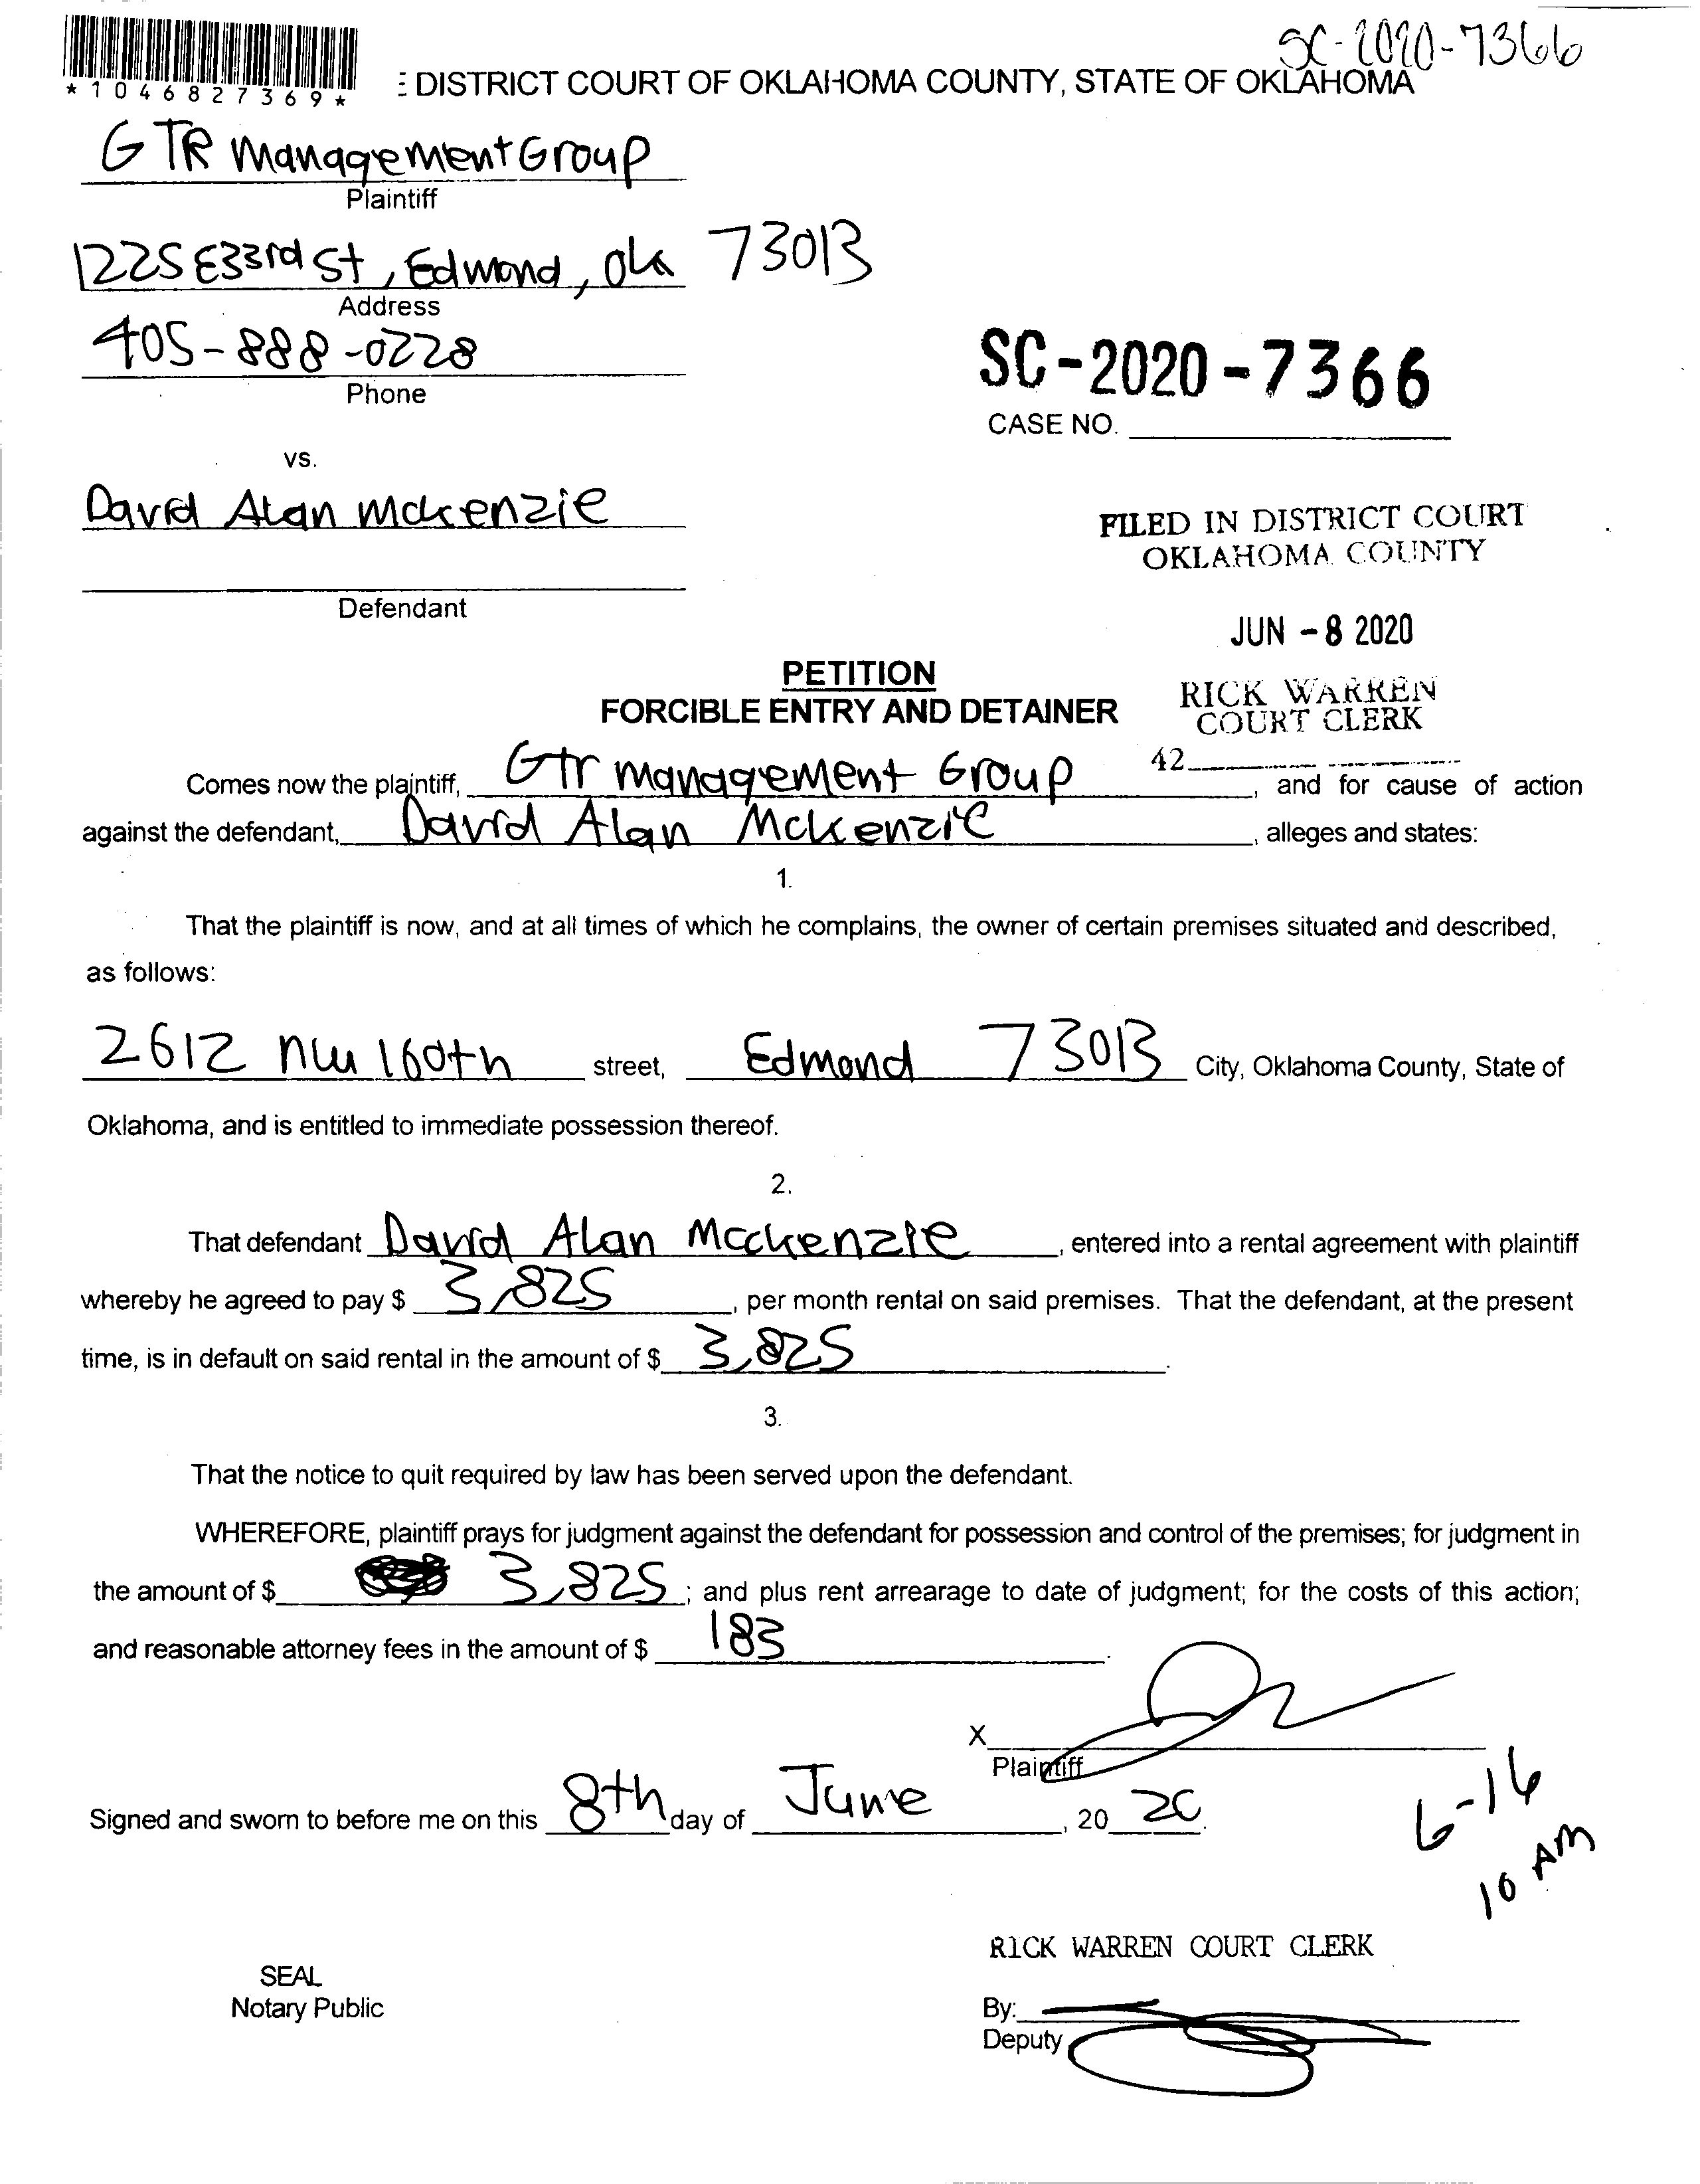 SC-2020-7366
*1046827369*
: DISTRICT COURT OF OKLAHOMA COUNTY, STATE OF OKLAHOMA
GTR Management Group
Plaintiff
1225 E33rd St, Edmond, Ok 73013
Address
405-888-0228
Phone
SC-2020-7366
CASE NO.
vs.
David Alan Mckenzie
FILED IN DISTRICT COURT
OKLAHOMA COUNTY
Defendant
JUN -8 2020
PETITION
FORCIBLE ENTRY AND DETAINER
RICK WARREN
COURT CLERK
42
Comes now the plaintiff, Gtr management Group, and for cause of action
against the defendant, David Alan Mckenzie, alleges and states:
1.
That the plaintiff is now, and at all times of which he complains, the owner of certain premises situated and described,
as follows:
2612 nw 160th street, Edmond 73013 City, Oklahoma County, State of
Oklahoma, and is entitled to immediate possession thereof.
2.
That defendant David Alan Mcckenzie, entered into a rental agreement with plaintiff
whereby he agreed to pay $ 3,825, per month rental on said premises. That the defendant, at the present
time, is in default on said rental in the amount of $ 3,825.
3.
That the notice to quit required by law has been served upon the defendant.
WHEREFORE, plaintiff prays for judgment against the defendant for possession and control of the premises; for judgment in
the amount of $ 3,825; and plus rent arrearage to date of judgment; for the costs of this action;
and reasonable attorney fees in the amount of $ 183.
X
Plaintiff
Signed and sworn to before me on this 8th day of June, 20 20.
6-16
10 AM
RICK WARREN COURT CLERK
SEAL
Notary Public
By:
Deputy